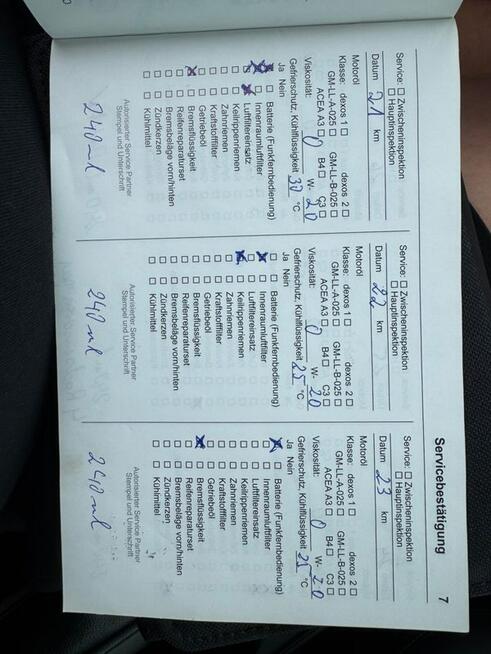 Servicebestätigung
7
Service: □ Zwischeninspektion
□ Hauptinspektion
Datum 21 km
Motoröl
Klasse: dexos 1 □ dexos 2 □
GM-LL-A-025 □ GM-LL-B-025 □
ACEA A3 □ B4 □ C3 □
Viskosität: 0 W- 20
Gefrierschutz, Kühlflüssigkeit 30 °C
Ja Nein
Batterie (Funkfernbedienung)
Innenraumluftfilter
Luftfiltereinsatz
Keilrippenriemen
Zahnriemen
Kraftstofffilter
Getriebeöl
Bremsflüssigkeit
Reifenreparaturset
Bremsbeläge vorn/hinten
Zündkerzen
Kühlmittel
Autorisierter Service Partner
Stempel und Unterschrift
240 ml
Service: □ Zwischeninspektion
□ Hauptinspektion
Datum 22 km
Motoröl
Klasse: dexos 1 □ dexos 2 □
GM-LL-A-025 □ GM-LL-B-025 □
ACEA A3 □ B4 □ C3 □
Viskosität: 0 W- 20
Gefrierschutz, Kühlflüssigkeit 25 °C
Ja Nein
Batterie (Funkfernbedienung)
Innenraumluftfilter
Luftfiltereinsatz
Keilrippenriemen
Zahnriemen
Kraftstofffilter
Getriebeöl
Bremsflüssigkeit
Reifenreparaturset
Bremsbeläge vorn/hinten
Zündkerzen
Kühlmittel
Autorisierter Service Partner
Stempel und Unterschrift
240 ml
Service: □ Zwischeninspektion
□ Hauptinspektion
Datum 23 km
Motoröl
Klasse: dexos 1 □ dexos 2 □
GM-LL-A-025 □ GM-LL-B-025 □
ACEA A3 □ B4 □ C3 □
Viskosität: 0 W- 20
Gefrierschutz, Kühlflüssigkeit 25 °C
Ja Nein
Batterie (Funkfernbedienung)
Innenraumluftfilter
Luftfiltereinsatz
Keilrippenriemen
Zahnriemen
Kraftstofffilter
Getriebeöl
Bremsflüssigkeit
Reifenreparaturset
Bremsbeläge vorn/hinten
Zündkerzen
Kühlmittel
Autorisierter Service Partner
Stempel und Unterschrift
240 ml